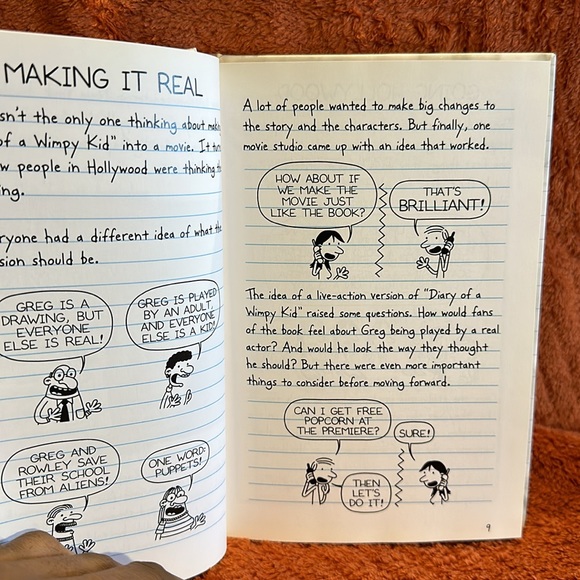 MAKING IT REAL
sn't the only one thinking about
of a Wimpy Kid" into a movie. It
w people in Hollywood were thinking
ing.
ryone had a different idea of what the
sion should be.
GREG IS A
DRAWING, BUT
EVERYONE
ELSE IS REAL!
GREG IS PLAYED
BY AN ADULT,
AND EVERYONE
ELSE IS A KID!
GREG AND
ROWLEY SAVE
THEIR SCHOOL
FROM ALIENS!
ONE WORD:
PUPPETS!
A lot of people wanted to make big changes to
the story and the characters. But finally, one
movie studio came up with an idea that worked.
HOW ABOUT IF
WE MAKE THE
MOVIE JUST
LIKE THE BOOK?
THAT'S
BRILLIANT!
The idea of a live-action version of "Diary of a
Wimpy Kid" raised some questions. How would fans
of the book feel about Greg being played by a real
actor? And would he look the way they thought
he should? But there were even more important
things to consider before moving forward.
CAN I GET FREE
POPCORN AT
THE PREMIERE?
SURE!
THEN
LET'S
DO IT!
9